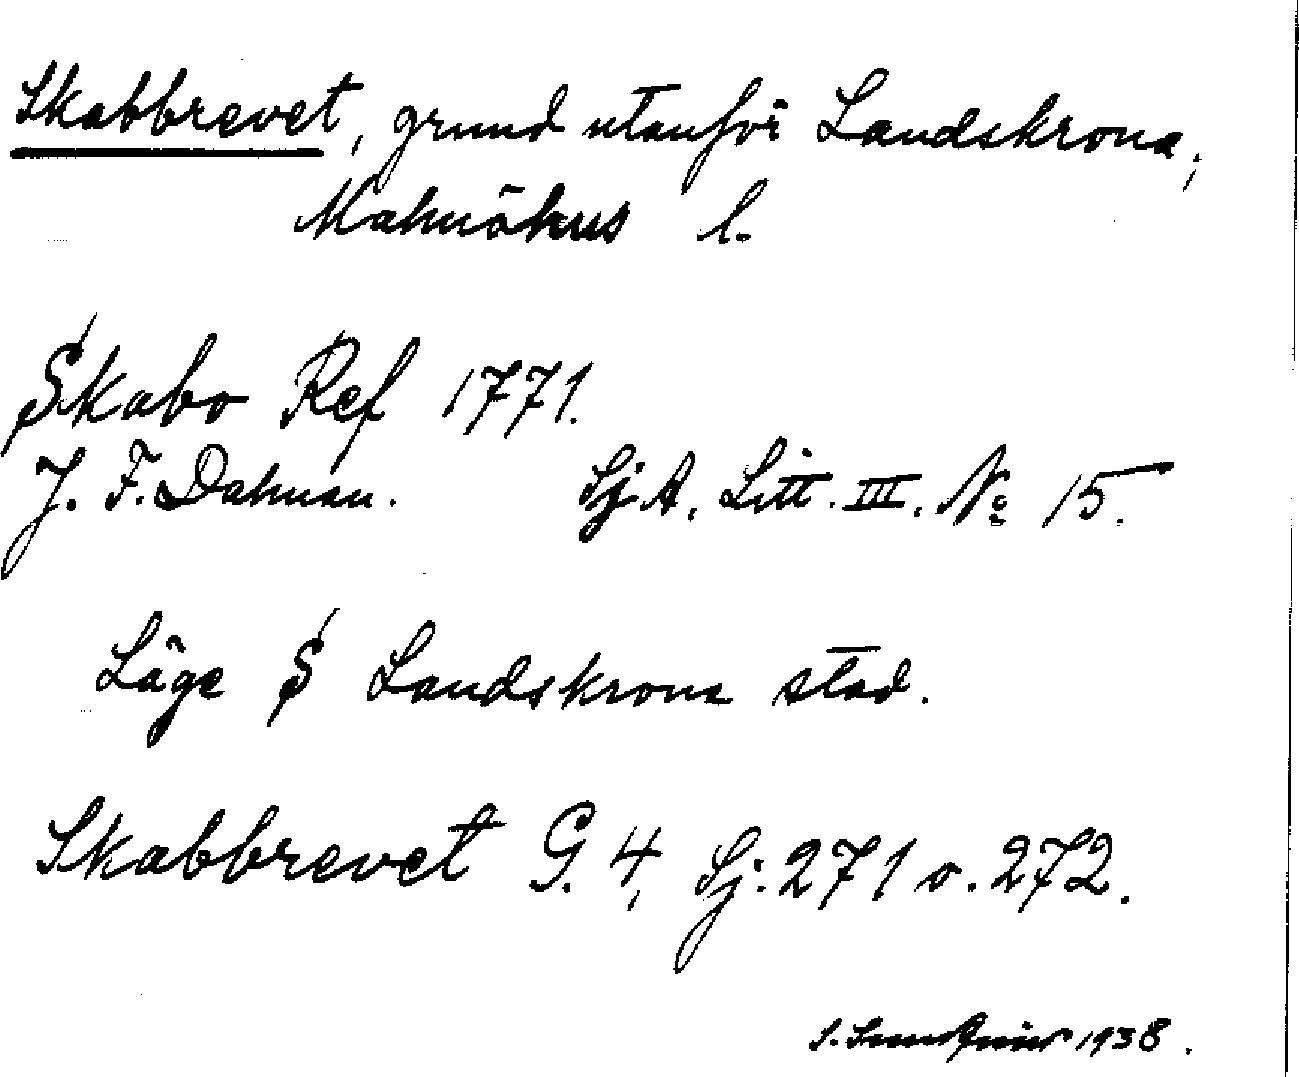 Skabbrevet, grund utanför Landskrona,
Malmöhus l.
Skabo Ref 1771.
J. F. Dahman. Sj A. Litt. III. No 15.
Läge S Landskrona stad.
Skabbrevet G. 4, Sj. 271 o. 272.
S. 1938.